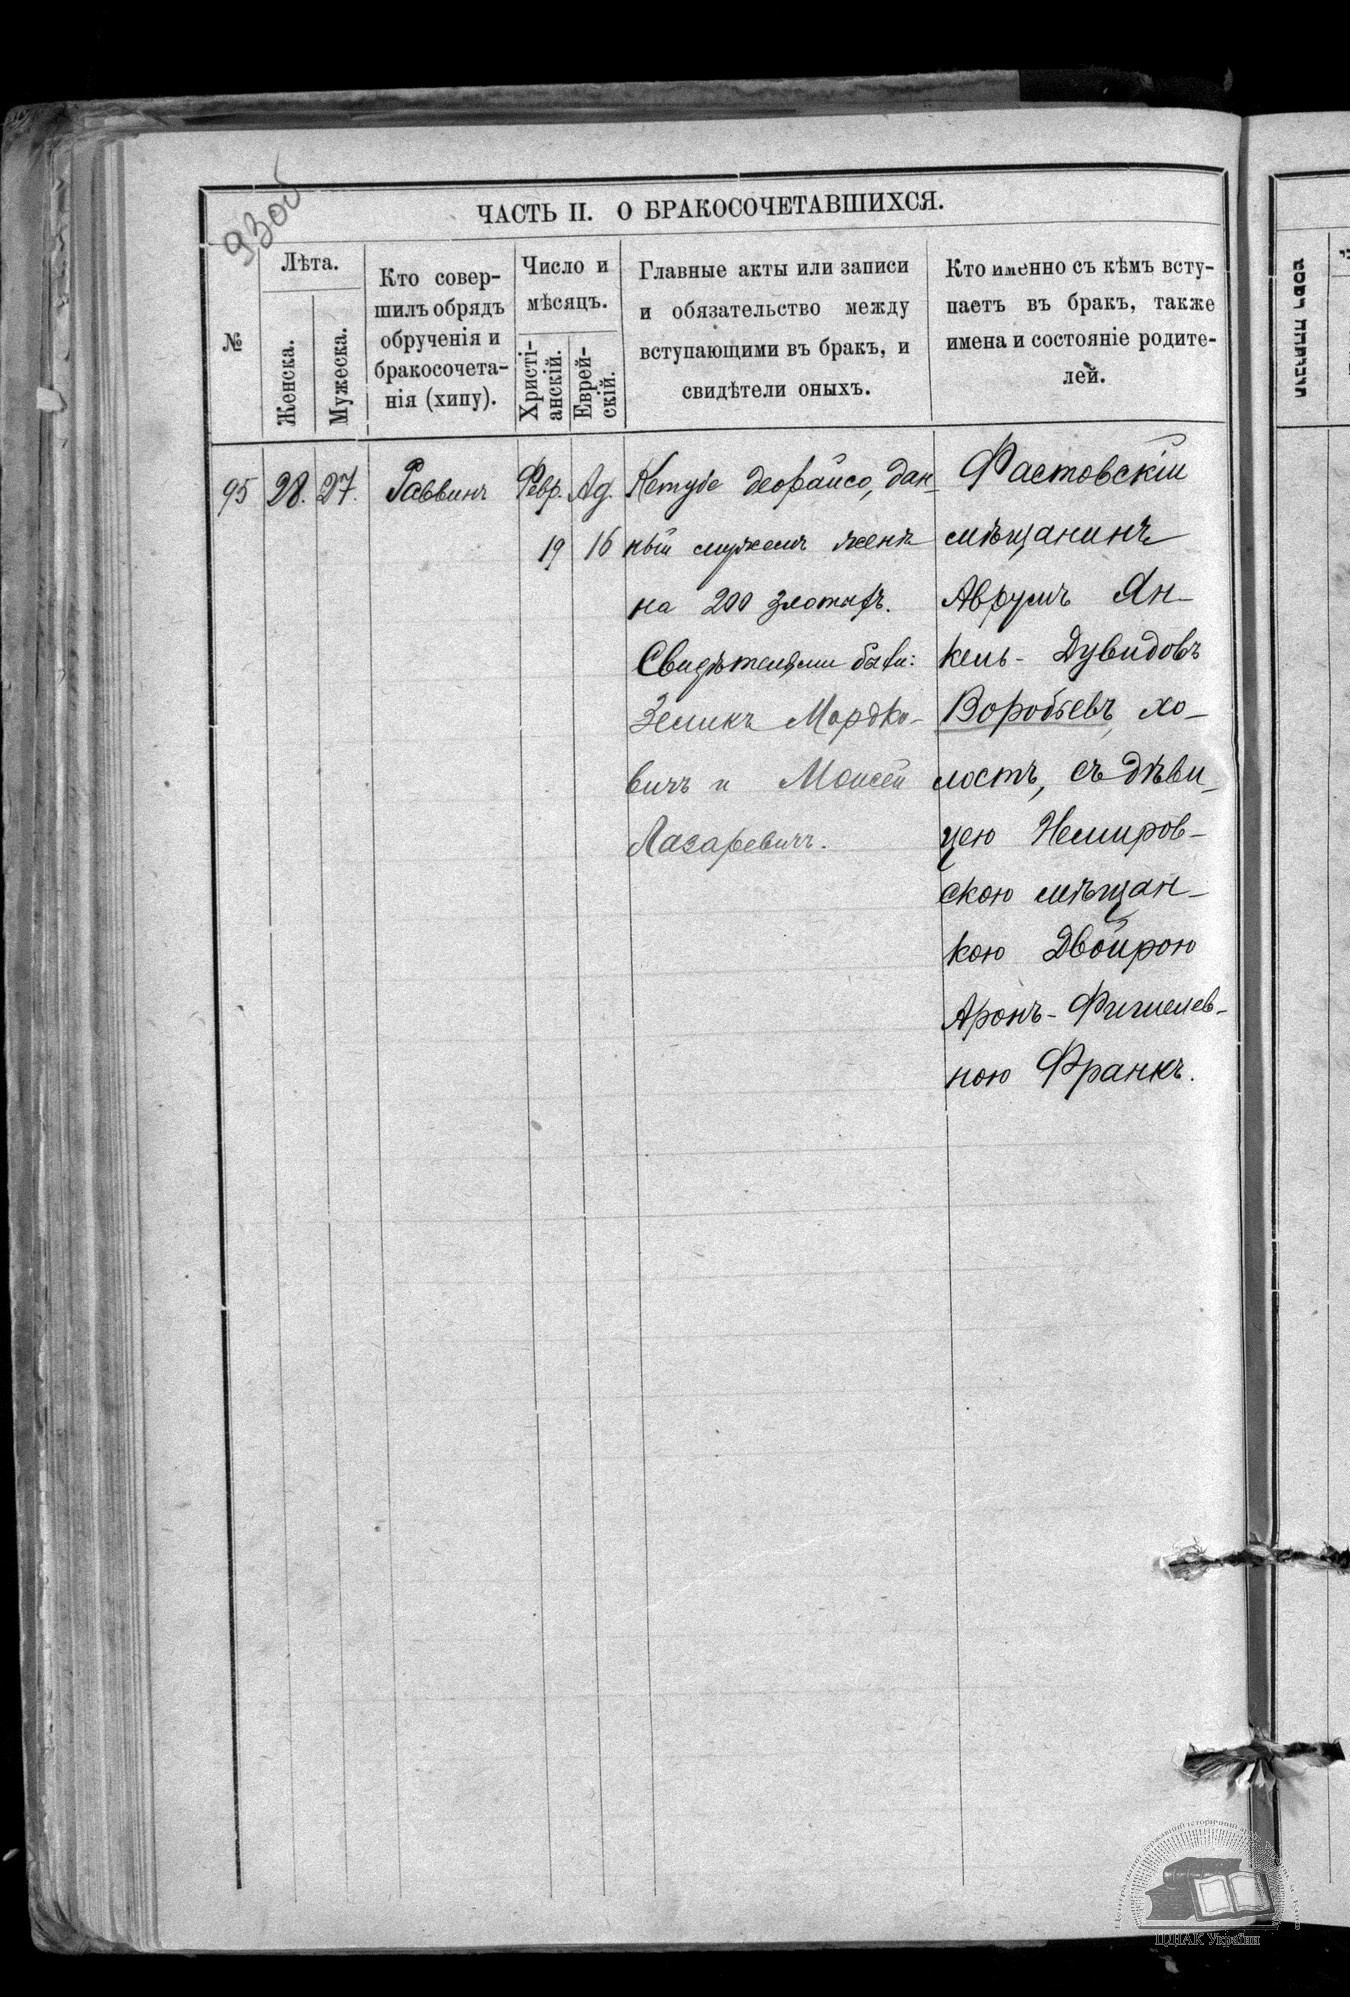 930об
ЧАСТЬ II. О БРАКОСОЧЕТАВШИХСЯ.
№
Лѣта.
Женска.
Мужеска.
Кто совер-
шилъ обрядъ
обрученія и
бракосочета-
нія (хипу).
Число и
мѣсяцъ.
Христі-
анскій.
Еврей-
скій.
Главные акты или записи
и обязательство между
вступающими въ бракъ, и
свидѣтели оныхъ.
Кто именно съ кѣмъ всту-
паетъ въ бракъ, также
имена и состояніе родите-
лей.
95
28.
27.
Раввинъ
Февр.
19
Ад.
16
Кетубе деорайсо, дан-
ный мужемъ женѣ
на 200 злотыхъ.
Свидѣтелями были:
Зеликъ Мордко-
вичъ и Моисей
Лазаревичъ.
Фастовскій
мѣщанинъ
Аврумъ Ян-
кель-Дувидовъ
Воробьевъ, хо-
лостъ, съ дѣви-
цею Немиров-
скою мѣщан-
кою Двойрою
Аронъ-Фишелев-
ною Франкъ.
ЦДІАК України